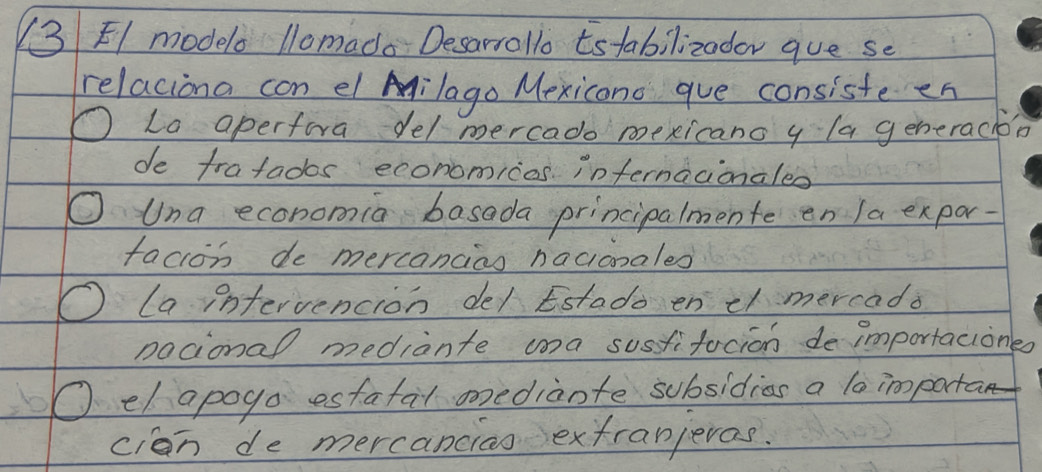 13 El modelo llamado Desarrollo Estabilizador que se
relaciona con el Milago Mexicano que consiste en
La apertura del mercado mexicano y la generación
de tratados economicos internacionales
Una economia basada principalmente en la expor-
tación de mercancias nacionales
La intervención del Estado en el mercado
nacional mediante una sustitución de importaciones
el apoyo estatal mediante subsidios a la importan
ción de mercancias extranjeras.